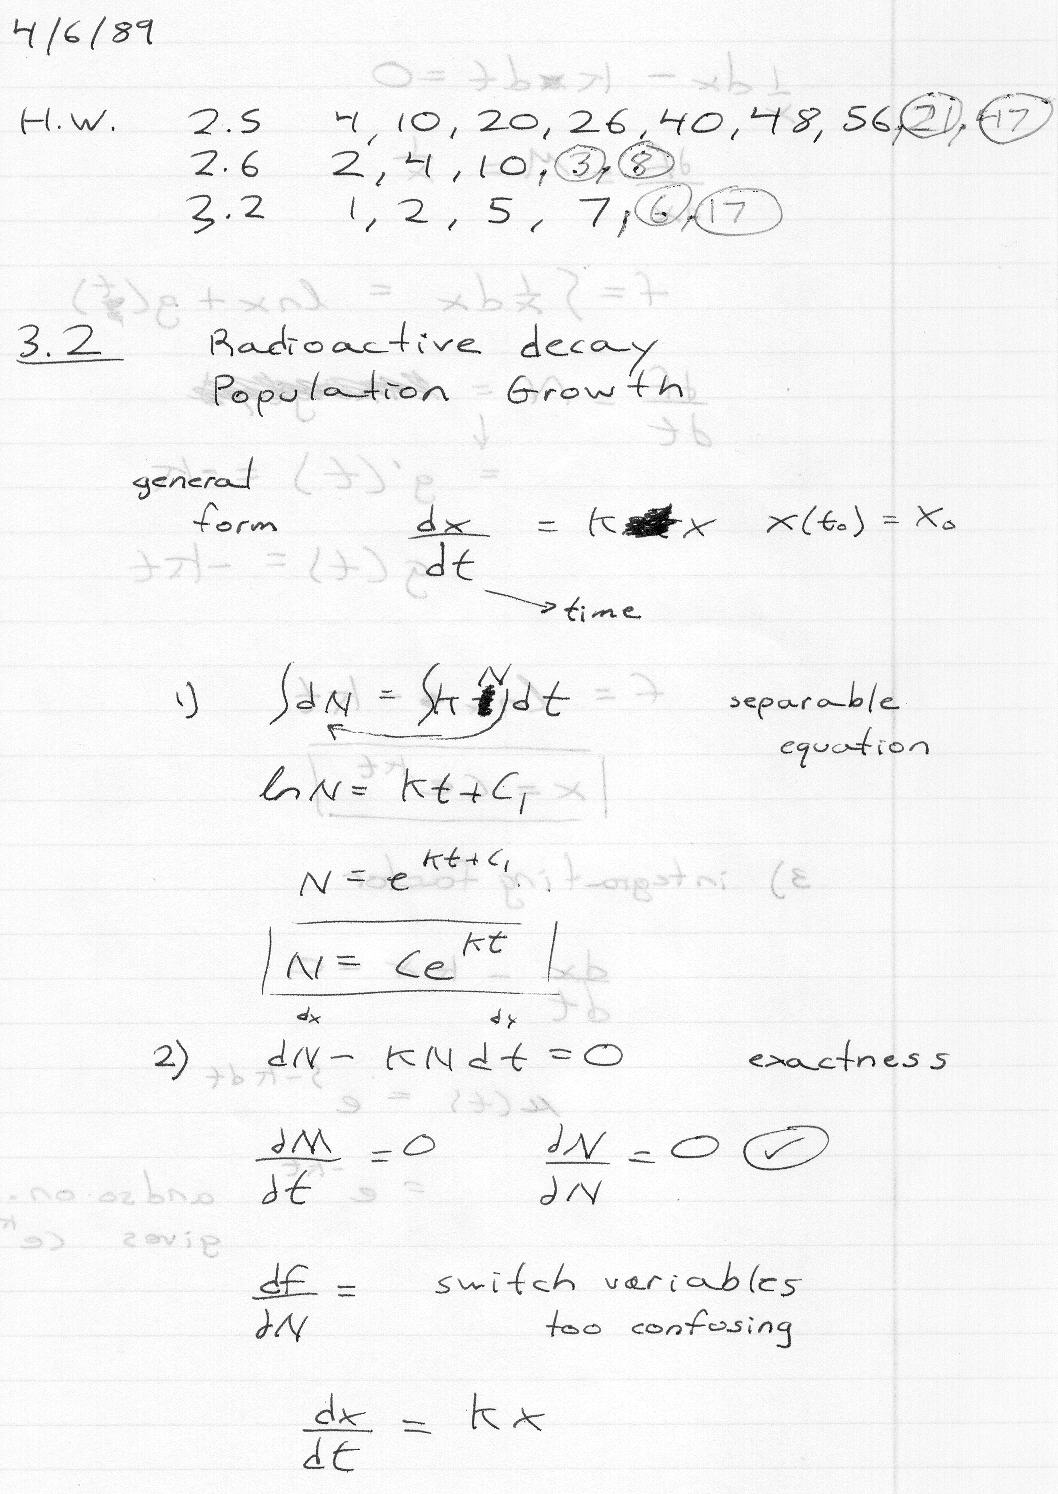 4/6/89
H.W. 2.5 4, 10, 20, 26, 40, 48, 56, 21, 47
2.6 2, 4, 10, 3, 8
3.2 1, 2, 5, 7, 6, 17
3.2 Radioactive decay
Population Growth
general
form dx/dt = k x x(t₀) = x₀
time
1) ∫dN = ∫k N dt separable
equation
ln N = kt + C₁
N = e^(kt+C₁)
N = Ce^(kt)
dx dx
2) dN - KN dt = 0 exactness
∂M/∂t = 0 ∂N/∂N = 0 ✓
∂f/∂N = switch variables
too confusing
dx/dt = kx